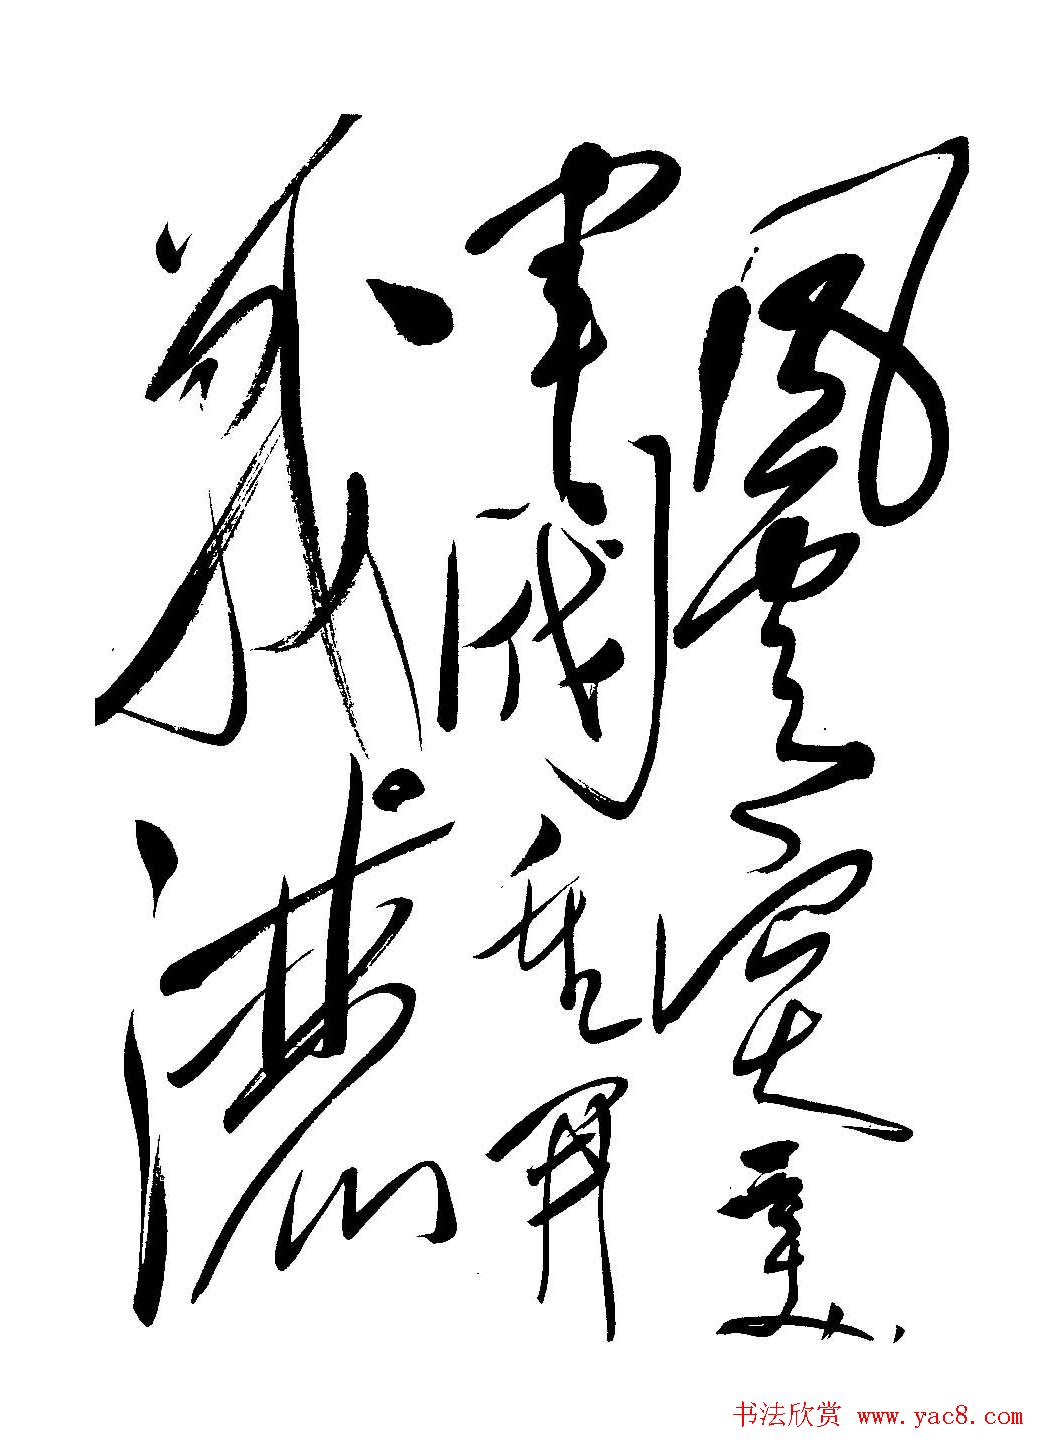 風雲突變，
軍閥重開
戰。灑
书法欣赏 www.yac8.com